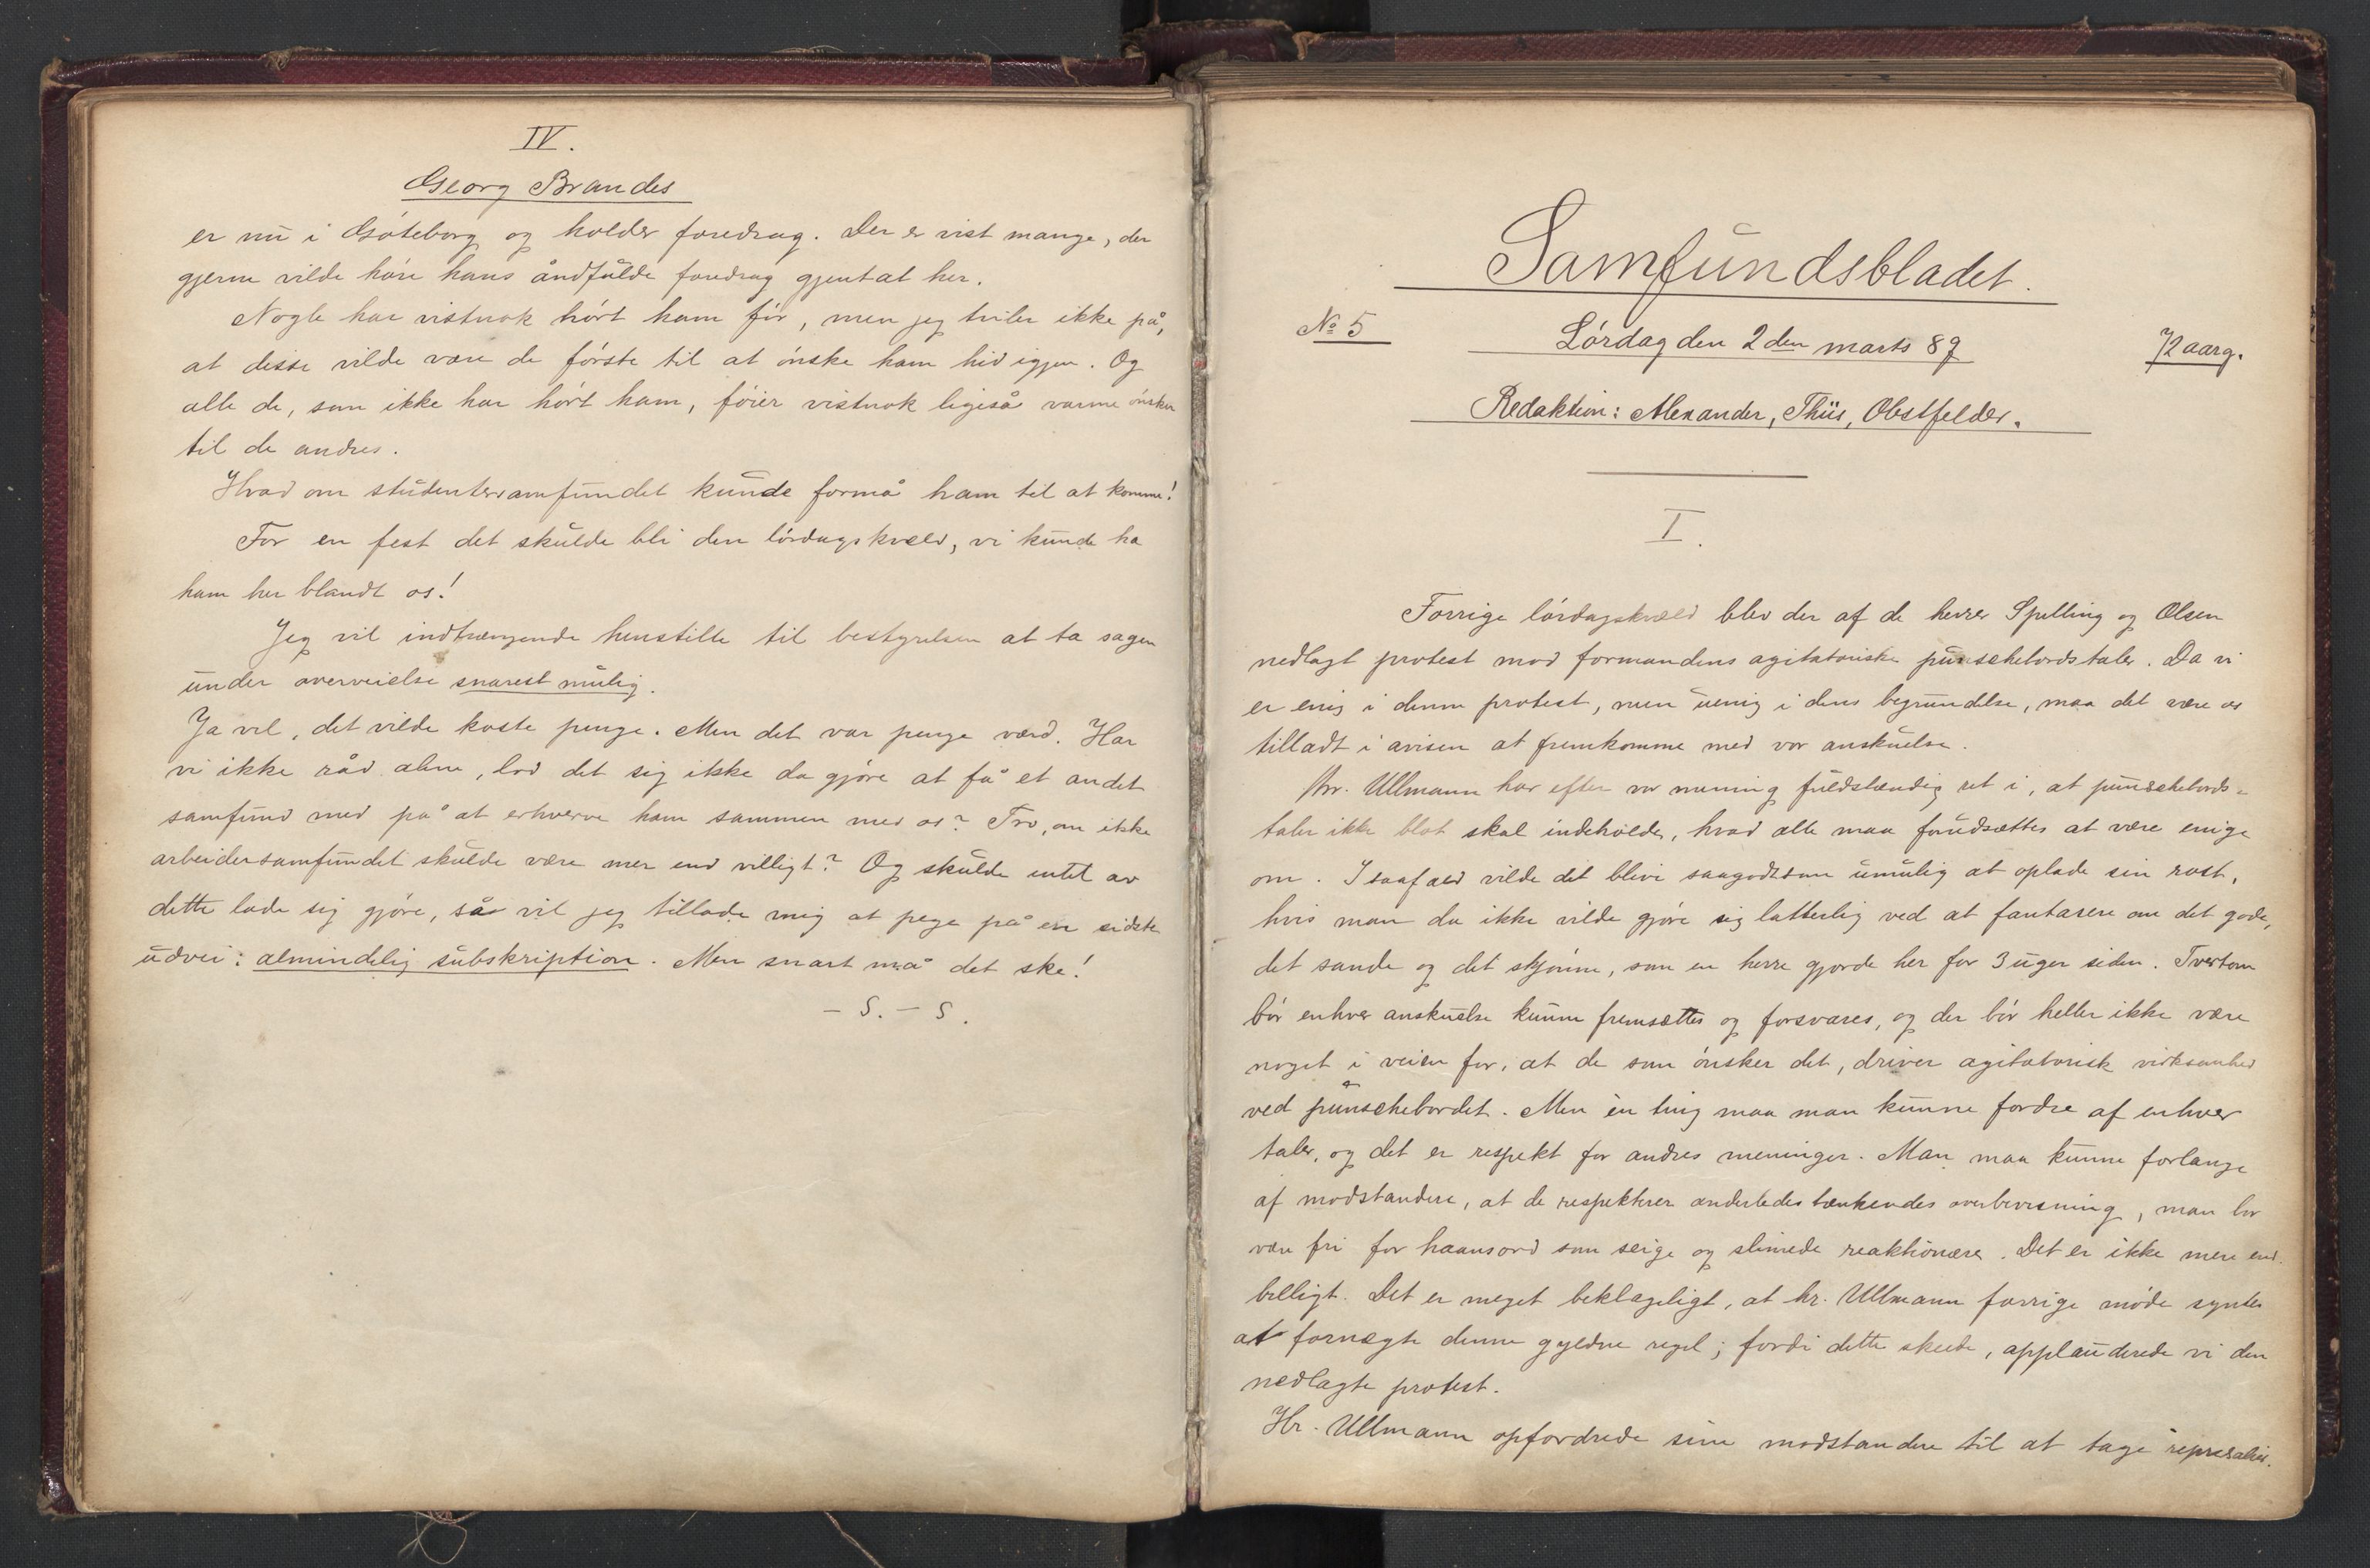 IV.
Georg Brandes
er nu i Gøteborg og holder foredrag. Der er vist mange, der
gjerne vilde høre hans åndfulde foredrag gjentat her.
Nogle har vistnok hørt ham før, men jeg tviler ikke på,
at disse vilde være de første til at ønske ham hid igjen. Og
alle de, som ikke har hørt ham, føier vistnok ligeså varme ønsker
til de andres.
Hvad om studentersamfundet kunde formå ham til at komme!
For en fest det skulde bli den lørdagskveld, vi kunde ha
ham her blandt os!
Jeg vil indtrængende henstille til bestyrelsen at ta sagen
under overveielse snarest mulig.
Ja vel, det vilde koste penge. Men det var penge værd. Har
vi ikke råd alene, lod det sig ikke da gjøre at få et andet
samfund med på at erhverve ham sammen med os? Tro, om ikke
arbeidersamfundet skulde være mer end villigt? Og skulde intet av
dette lade sig gjøre, så vil jeg tillade mig at pege på en sidste
udvei: almindelig subskription. Men snart må det ske!
– S. – S.
Samfundsbladet.
No 5
Lørdag den 2den marts 89
72 aarg.
Redaktion: Alexander, Thiis, Obstfelder.
I.
Forrige lørdagskvæld blev der af de herrer Spelling og Olsen
nedlagt protest mod formandens agitatoriske punschebordstaler. Da vi
er enig i denne protest, men uenig i dens begrundelse, maa det være os
tilladt i avisen at fremkomme med vor anskuelse.
Hr. Ullmann har efter vor mening fuldstændig ret i, at punschebords-
taler ikke blot skal indeholde, hvad alle maa forudsættes at være enige
om. I saafald vilde det blive saagodtsom umulig at oplade sin røst,
hvis man da ikke vilde gjøre sig latterlig ved at fantasere om det gode,
det sande og det skjønne, som en herre gjorde her for 3 uger siden. Tvertom
bør enhver anskuelse kunne fremsættes og forsvares, og der bør heller ikke være
noget i veien for, at de som ønsker det, driver agitatorisk virksomhed
ved punschebordet. Men èn ting maa man kunne fordre af enhver
taler, og det er respekt for andres meninger. Man maa kunne forlange
af modstandere, at de respekterer anderledes tænkendes overbevisning, man bør
være fri for haansord som seige og slimede reaktionære. Det er ikke mere end
billigt. Det er meget beklageligt, at hr. Ullmann forrige møde syntes
at fornægte denne gyldne regel; fordi dette skede, applauderede vi den
nedlagte protest.
Hr. Ullmann opfordrede sine modstandere til at tage represalier.